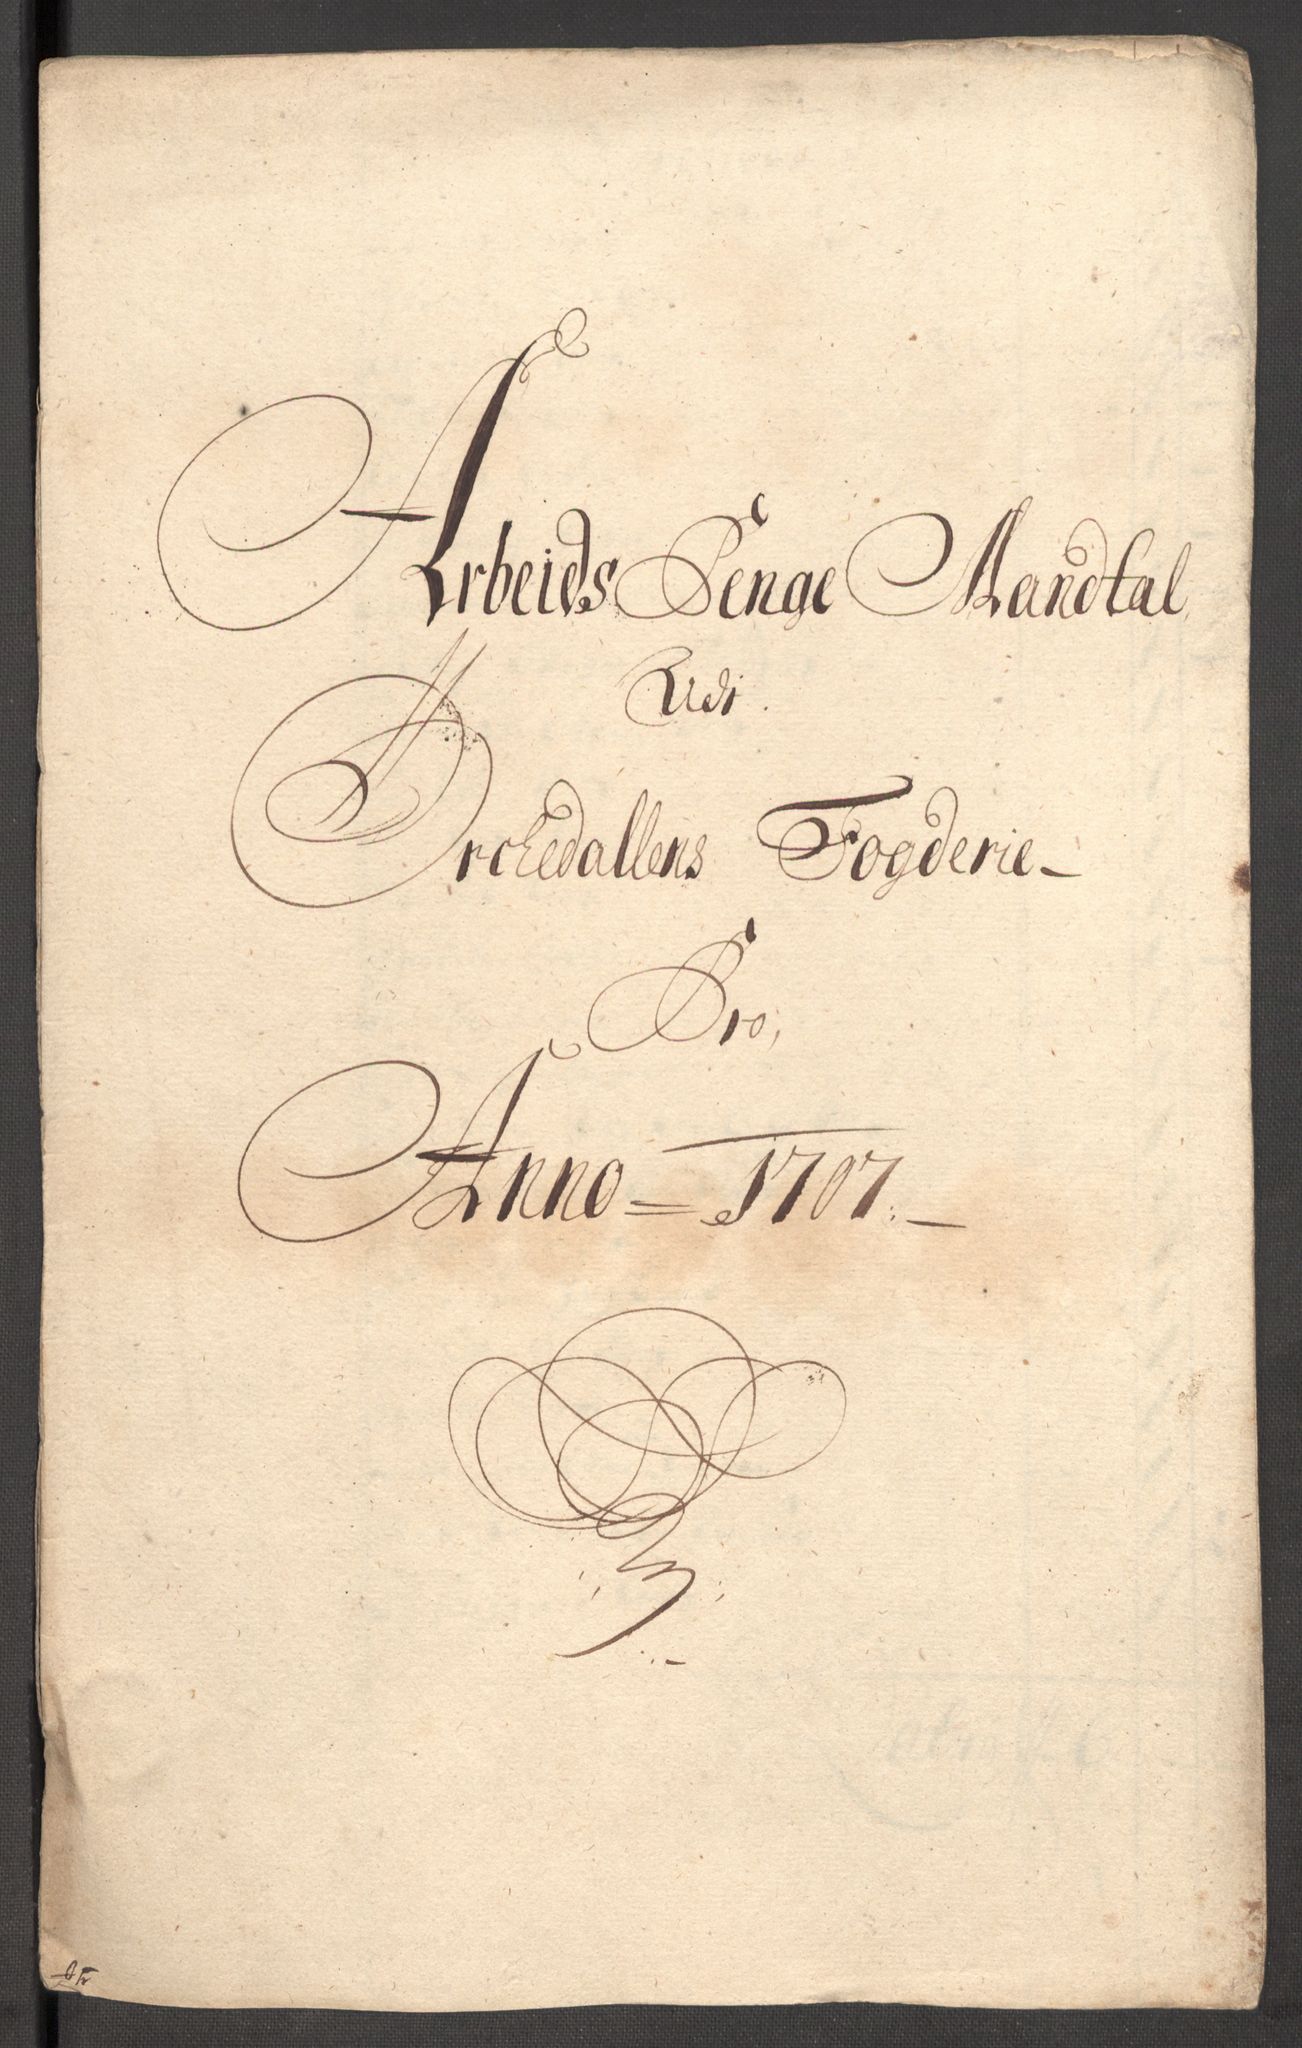 Arbeids Penge Mandtal
Udi
Orchedallens Fogderie
Pro,
Anno = 1707.